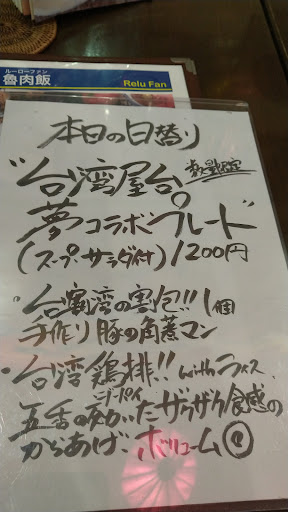 ルーローファン
魯肉飯
Relu Fan
本日の日替り
"台湾屋台 数量限定
夢コラボプレート"
(スープ・サラダ付) 1200円
・台湾の割包!! 1個
手作り豚の角煮マン
・台湾鶏排!! withライス
ジーパイ
五香の効いたザクザク食感の
からあげ、ボリューム